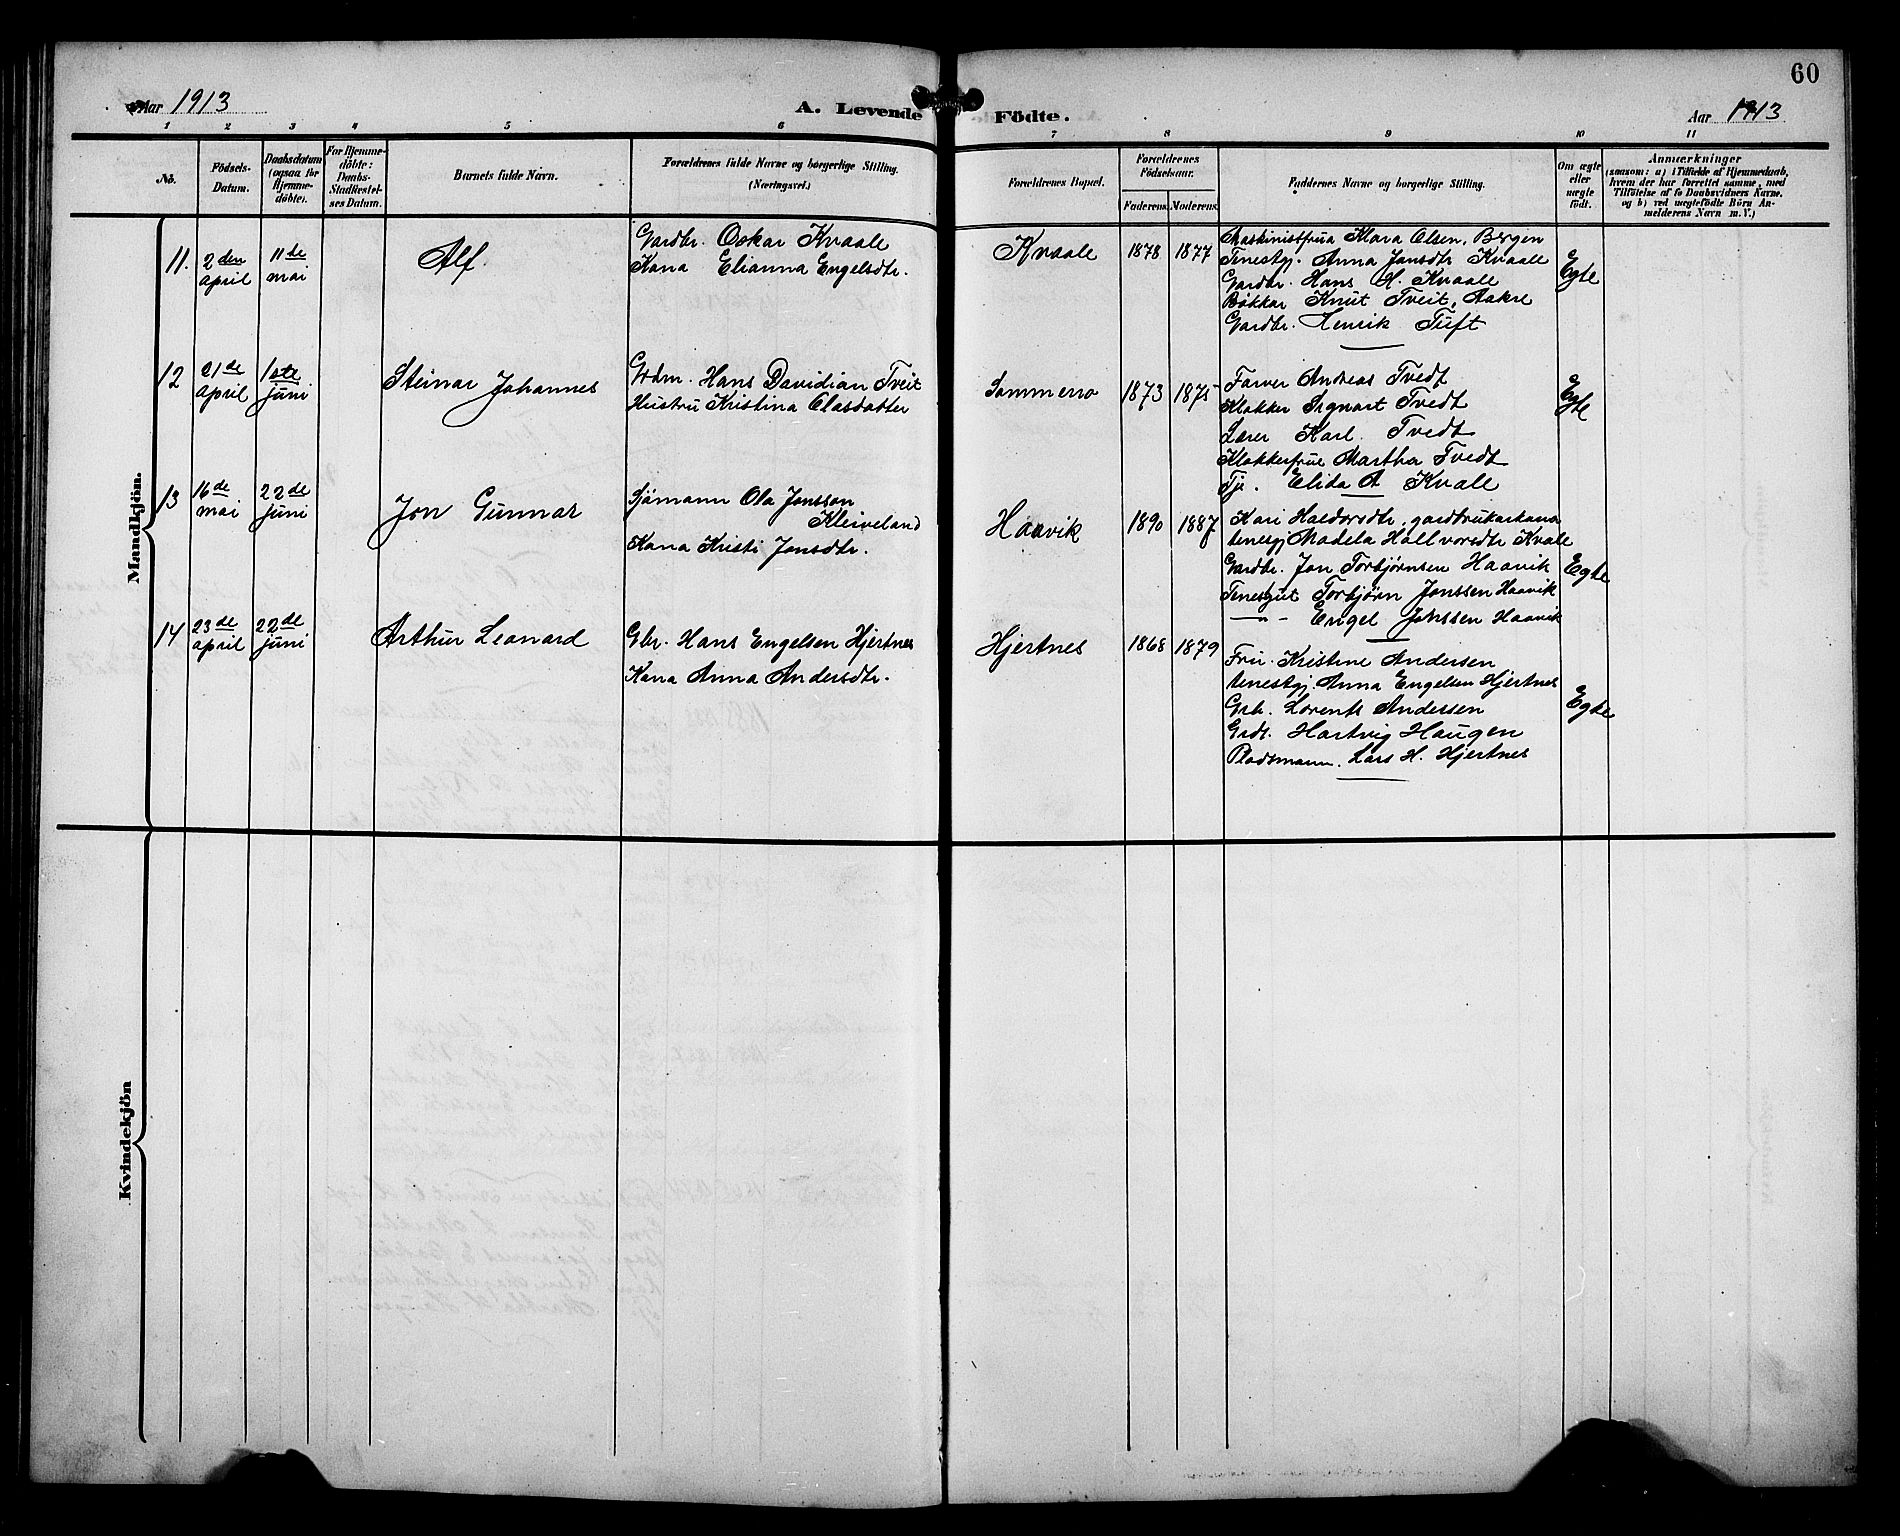 60
Aar 1913
A. Levende Födte.
Aar 1913
1 2 3 4 5 6 7 8 9 10 11
No.
Födsels-
Datum.
Daabsdatum
(ogsaa for
Hjemme-
döbte).
For Hjemme-
döbte:
Daabs-
Stadfæstel-
ses Datum.
Barnets fulde Navn.
Forældrenes fulde Navne og borgerlige Stilling.
(Næringsvei.)
Forældrenes Bopæl.
Forældrenes
Födselsaar.
Faderens. Moderens.
Faddernes Navne og borgerlige Stilling.
Om ægte
eller
uægte
födt.
Anmærkninger
(saasom: a) i Tilfælde af Hjemmedaab,
hvem der har forrettet samme, med
Tilföielse af to Daabsvidners Navne.
og b) ved uægtefödte Börn An-
melderens Navn m. V.)
Mandkjön.
11.
2den
april
11te
mai
Alf.
Gardbr. Oskar Kvaale
Kona Elianna Engelsdtr.
Kvaale
1878 1877
Maskinistfrua Klara Olsen, Bergen
Tenestgj. Anna Jonsdtr Kvaale
Gardbr. Hans H. Kvaale
Bøkkar Knut Tveit, Aakre
Gardbr. Henrik Tuft
Egte
12
21de
april
1ste
juni
Steinar Johannes
Grdm. Hans Davidian Tveit
Hustru Kristina Olasdatter
Sommerro
1873 1875
Farver Andreas Tvedt
Klokker Sigvart Tvedt
Lærer Karl. Tvedt
Klokkerfrue Martha Tvedt
Tj. Elida A Kvale
Egte
13
16de
mai
22de
juni
Jon Gunnar
Sjømann Ola Jonsson
Kleiveland
Kona Kristi Jonsdtr.
Haavik
1890 1887
Kari Haldorsdtr, gardbrukarkona
tenestgj Madela Hallvorsdtr Kvale
Gardbr. Jon Torbjørnsen Haavik
Tenesgut Torbjørn Jonssen Haavik
—"— Engel Jonssen Haavik
Egte
14
23de
april
22de
juni
Arthur Leonard
Gbr. Hans Engelsen Hjertnes
Kona Anna Andersdtr.
Hjertnes
1868 1879
Fru. Kristine Andersen
tenestgj. Anna Engelsen Hjertnes
Grb. Lorents Andersen
Grdt. Hartvig Haugen
Pladsmann. Lars H. Hjertnes
Egte
Kvindekjön